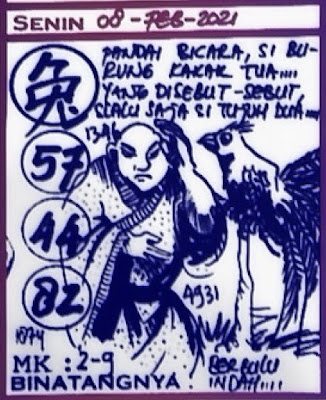 SENIN 08-FEB-2021
PANDAI BICARA, SI BU-
RUNG KAKAK TUA....
YANG DISEBUT-SEBUT,
SLALU SAJA SI TUJUH DUA....
兔
1346
57
44
82
4931
1074
MK : 2-9
BINATANGNYA :
BERBULU
INDAH....